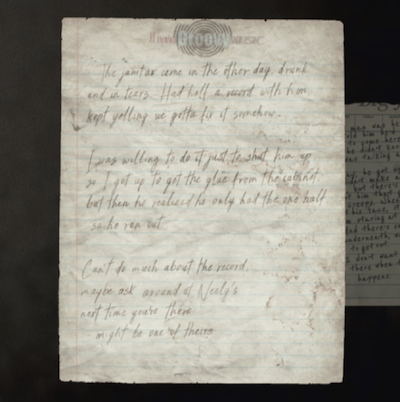 Groovy
The janitor came in the other day, drunk
and in tears. Had half a record with him,
kept yelling we gotta fix it somehow.
I was willing to do it just to shut him up
so I got up to get the glue from the cabinet
but then he realised he only had the one half
so he ran out
Can't do much about the record,
maybe ask around at Neely's
next time you're there
might be one of theirs